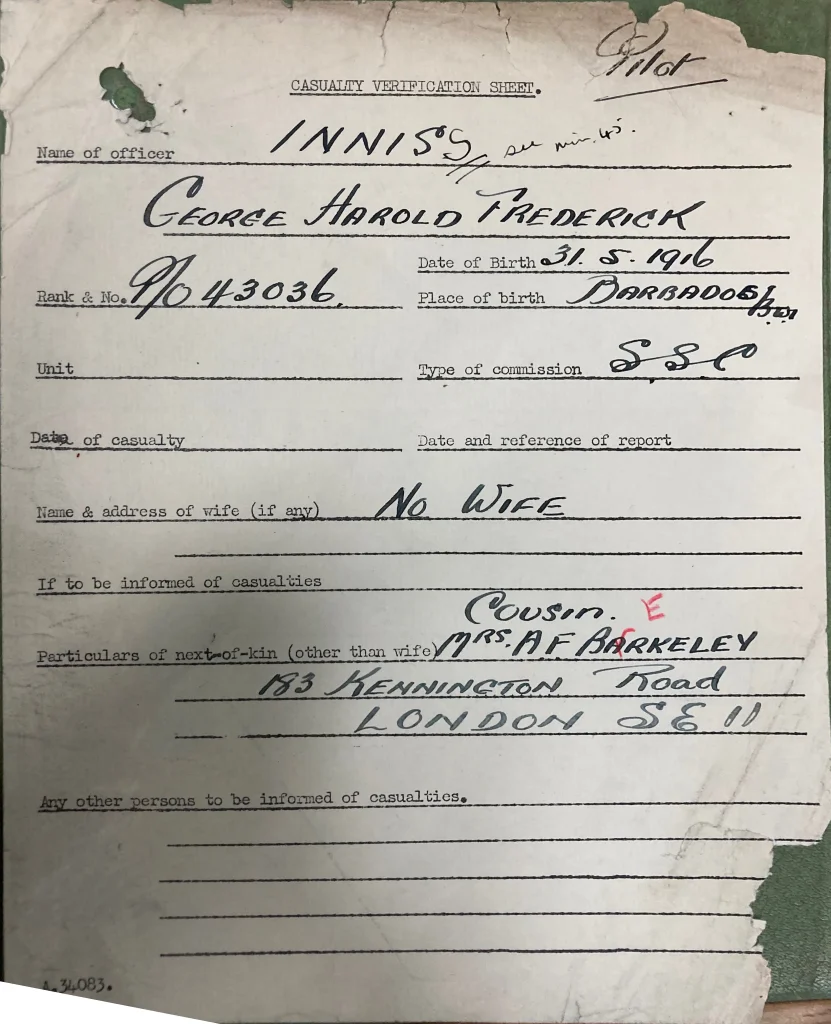 Pilot
CASUALTY VERIFICATION SHEET.
Name of officer INNISS see min. 45.
GEORGE HAROLD FREDERICK
Date of Birth 31. 5. 1916
Rank & No. P/O 43036. Place of birth BARBADOS BWI
Unit Type of commission SSC
Date of casualty Date and reference of report
Name & address of wife (if any) No WIFE
If to be informed of casualties
Cousin. E
Particulars of next-of-kin (other than wife) MRS. A F BARKELEY
183 KENNINGTON Road
LONDON SE 11
Any other persons to be informed of casualties.
A.34083.